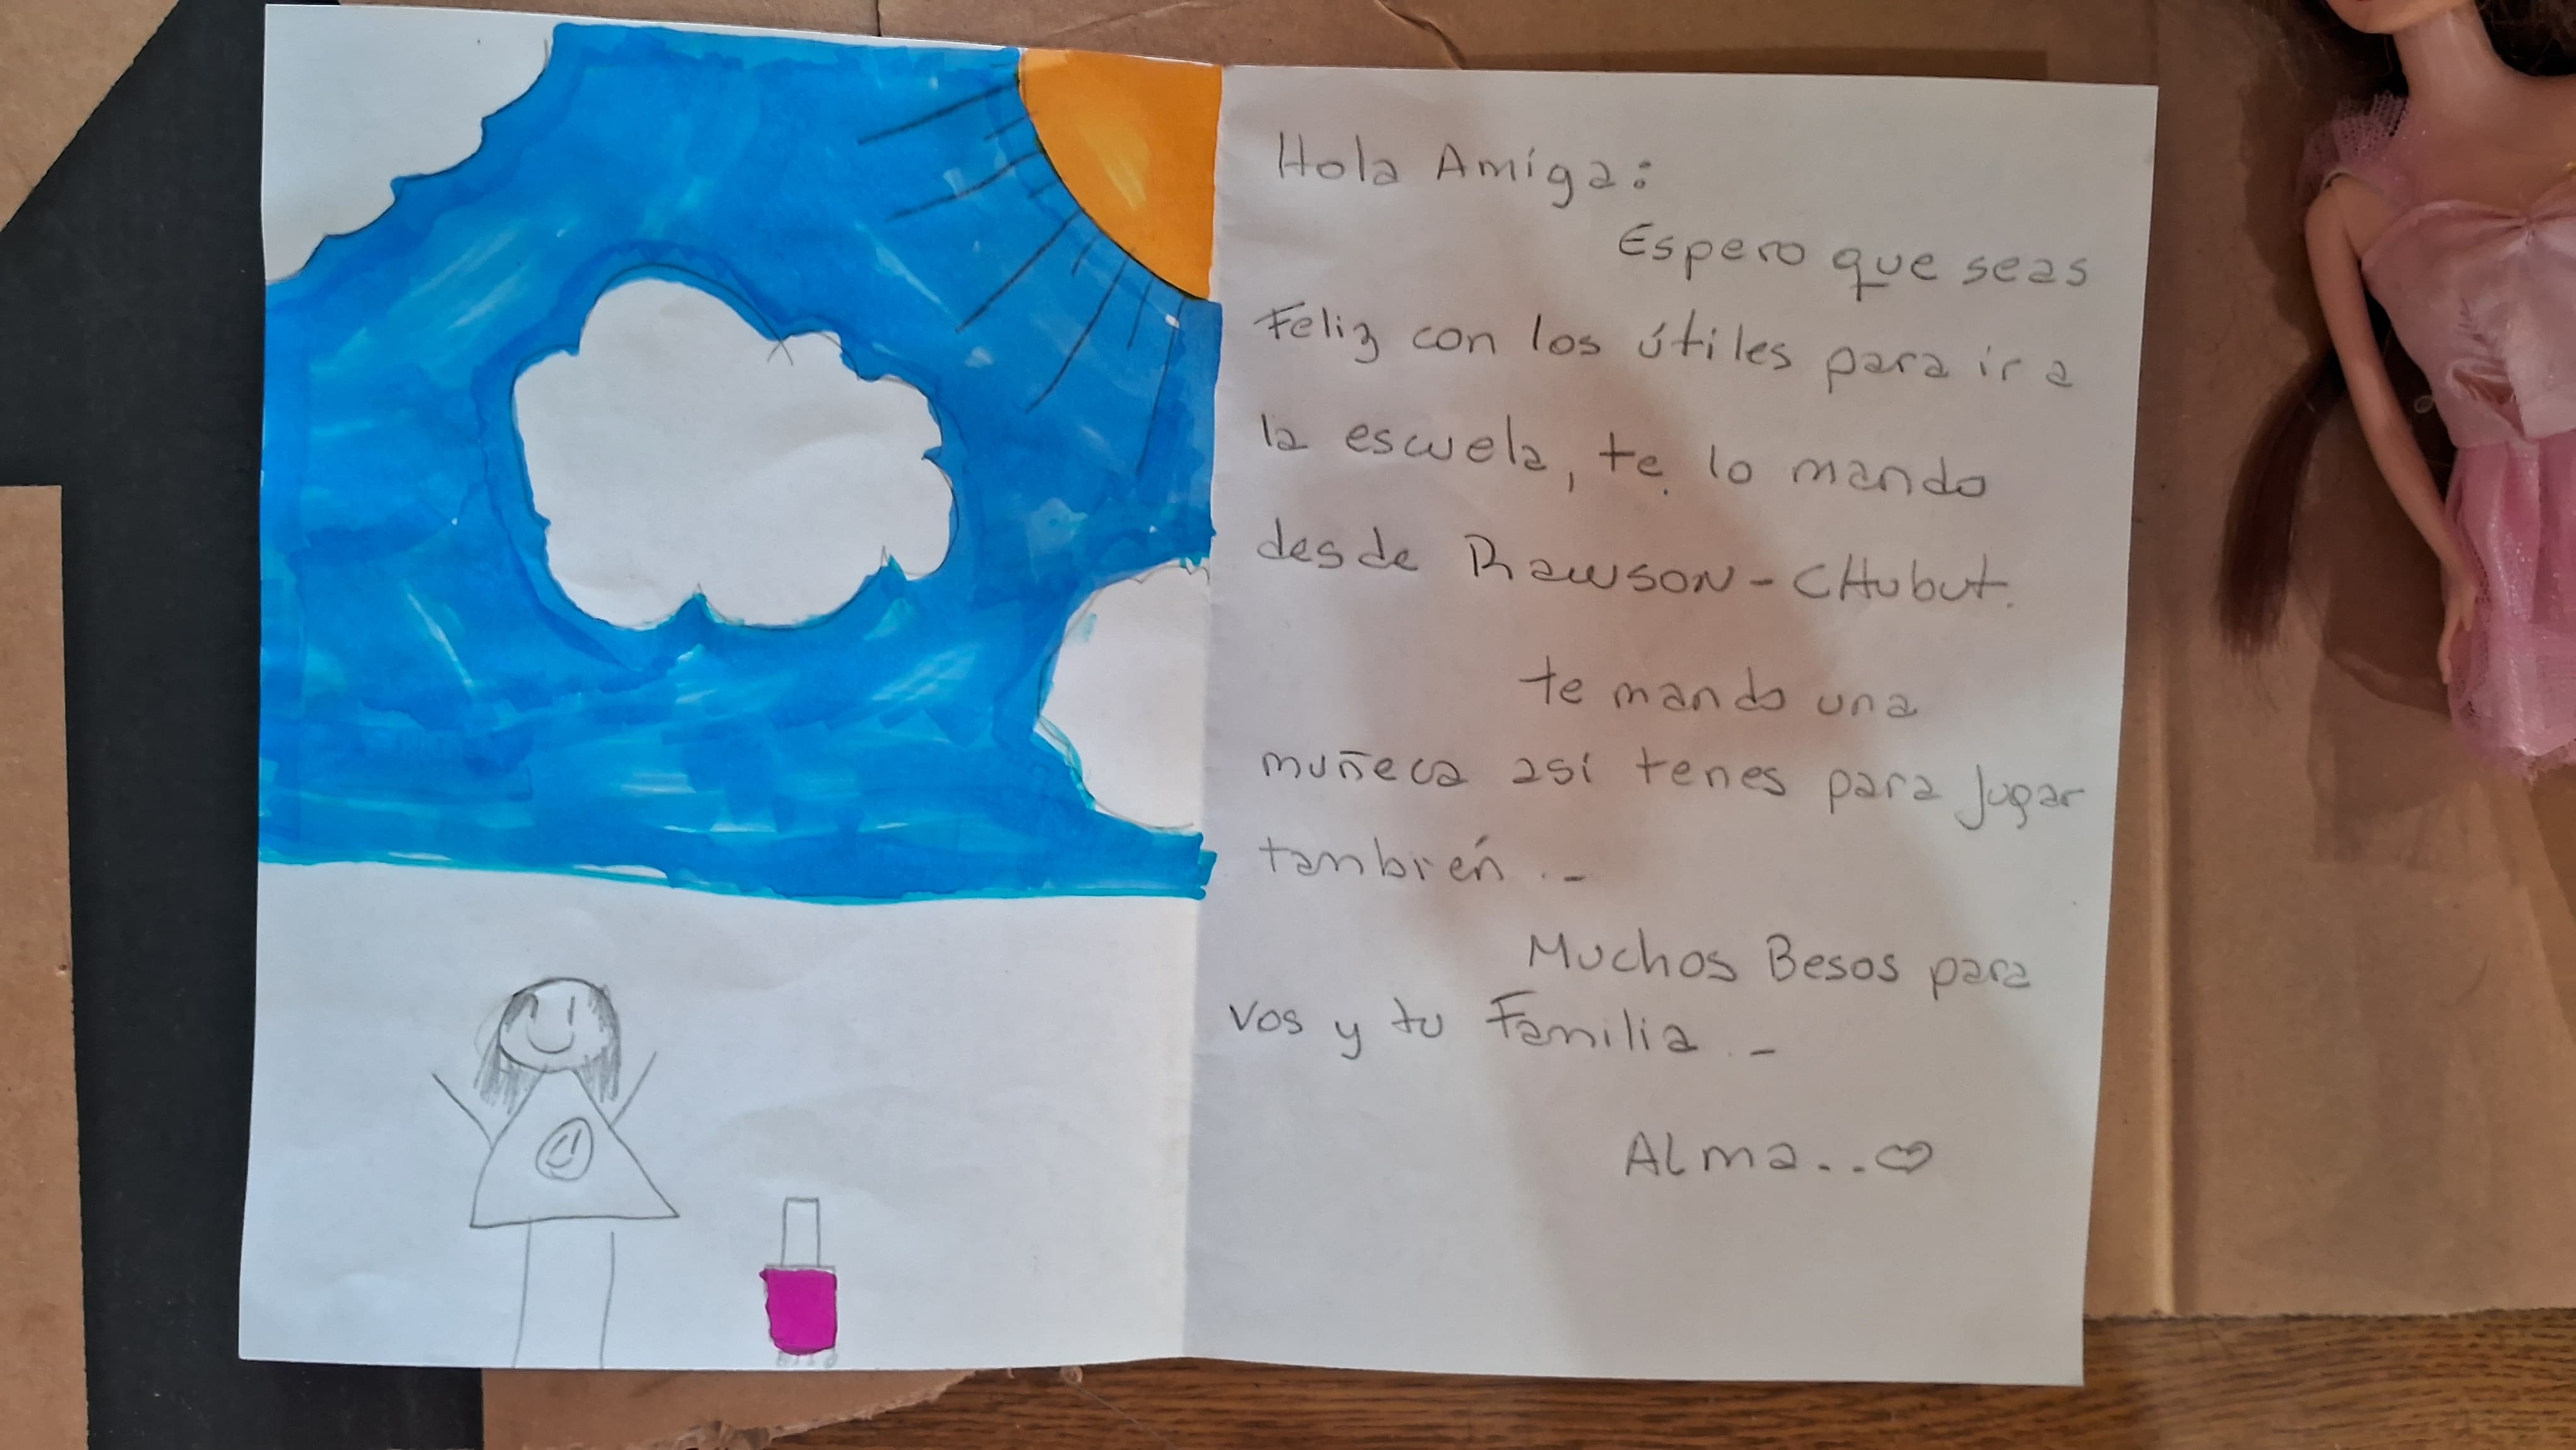 Hola Amiga:
Espero que seas
Feliz con los útiles para ir a
la escuela, te lo mando
desde RawSON - CHubut.
te mando una
muñeca así tenes para Jugar
también . -
Muchos Besos para
Vos y tu Familia . -
ALma.. ♡